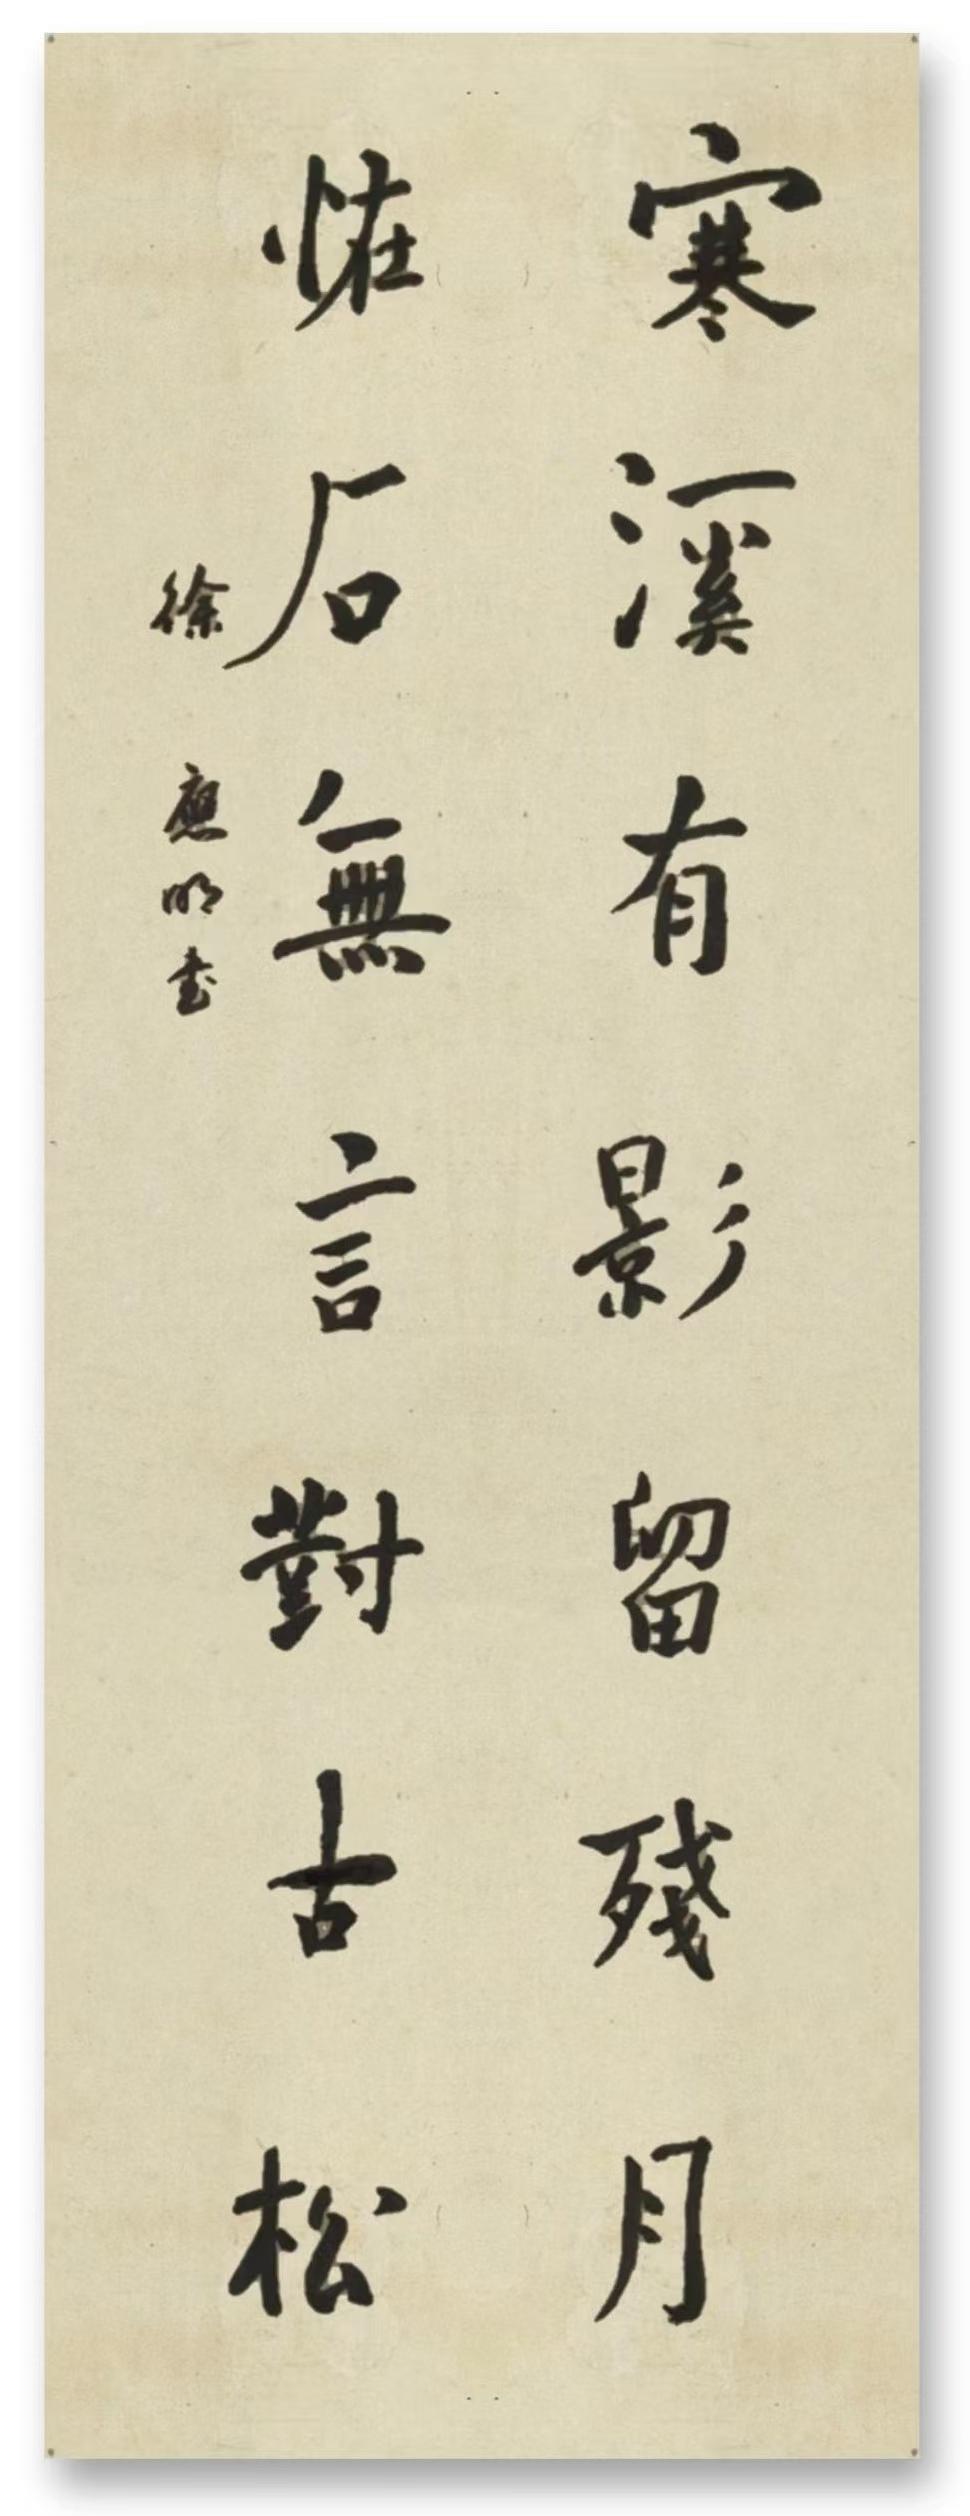 寒溪有影留殘月
恠石無言對古松
徐應明書